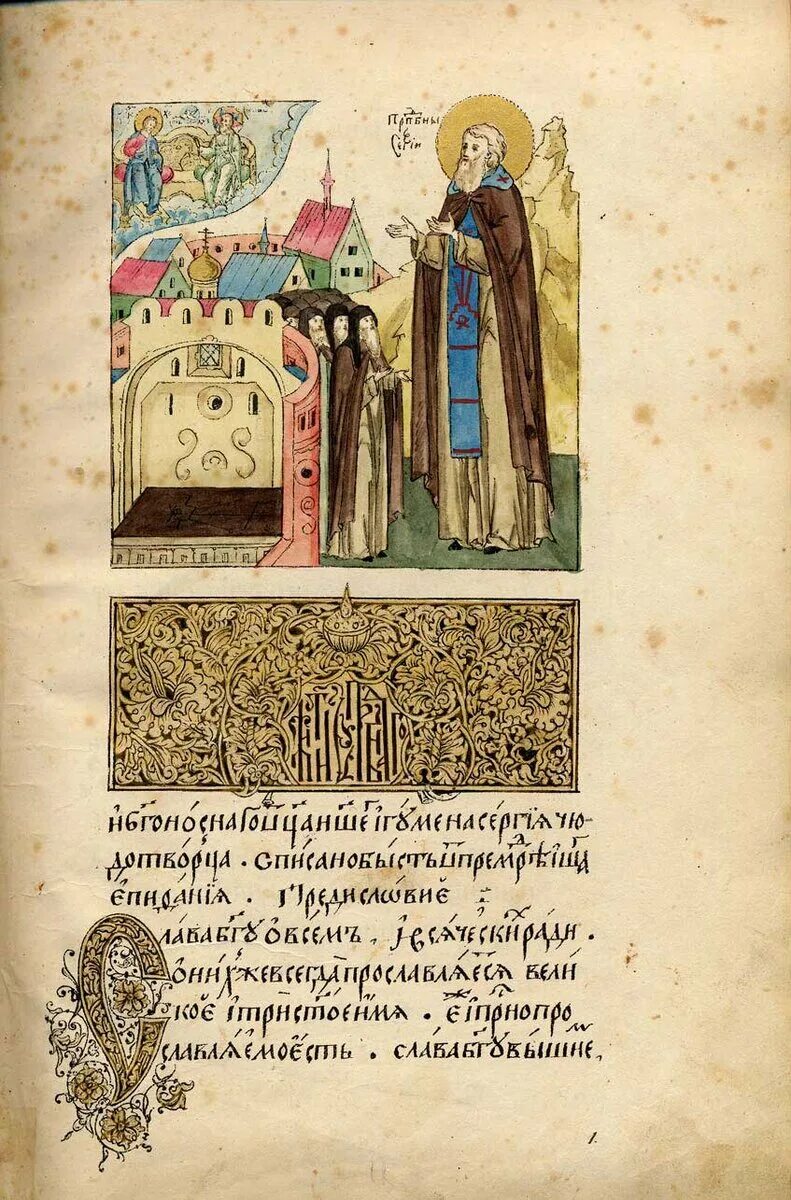 Прпбны
Сергіи
Житїе Прпбнаго
и҆ бг҃оно́снаго ѻ҆ц҃а на́шего і҆гꙋ́мена се́ргїѧ чю
дотво́рца . спи́сано бы́сть ѿ премꙋ́дрѣ́ишаго
є҆пи́ѳа́нїѧ . Предисло́вие
Сла́ва бг҃ꙋ ѡ҆ все́мъ , і҆ всѧ́ческих ра́ди .
ѡ҆ ни́хже всегда̀ прославлѧ́ется вели́
кое и҆ трист҃о́е и҆́мѧ . є҆́же и҆ при́сно про
славлѧ́емо є҆́сть . сла́ва бг҃ꙋ вы́шне
1.